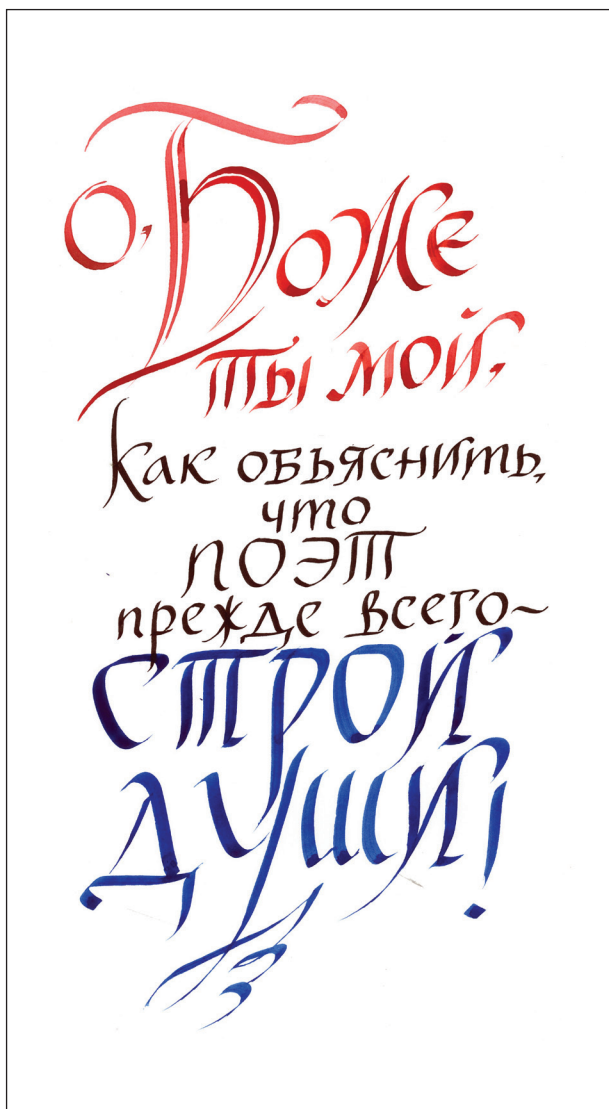 О, Боже
ты мой,
как обьяснить,
что
ПОЭТ
прежде всего~
СТРОЙ
ДУШИ!